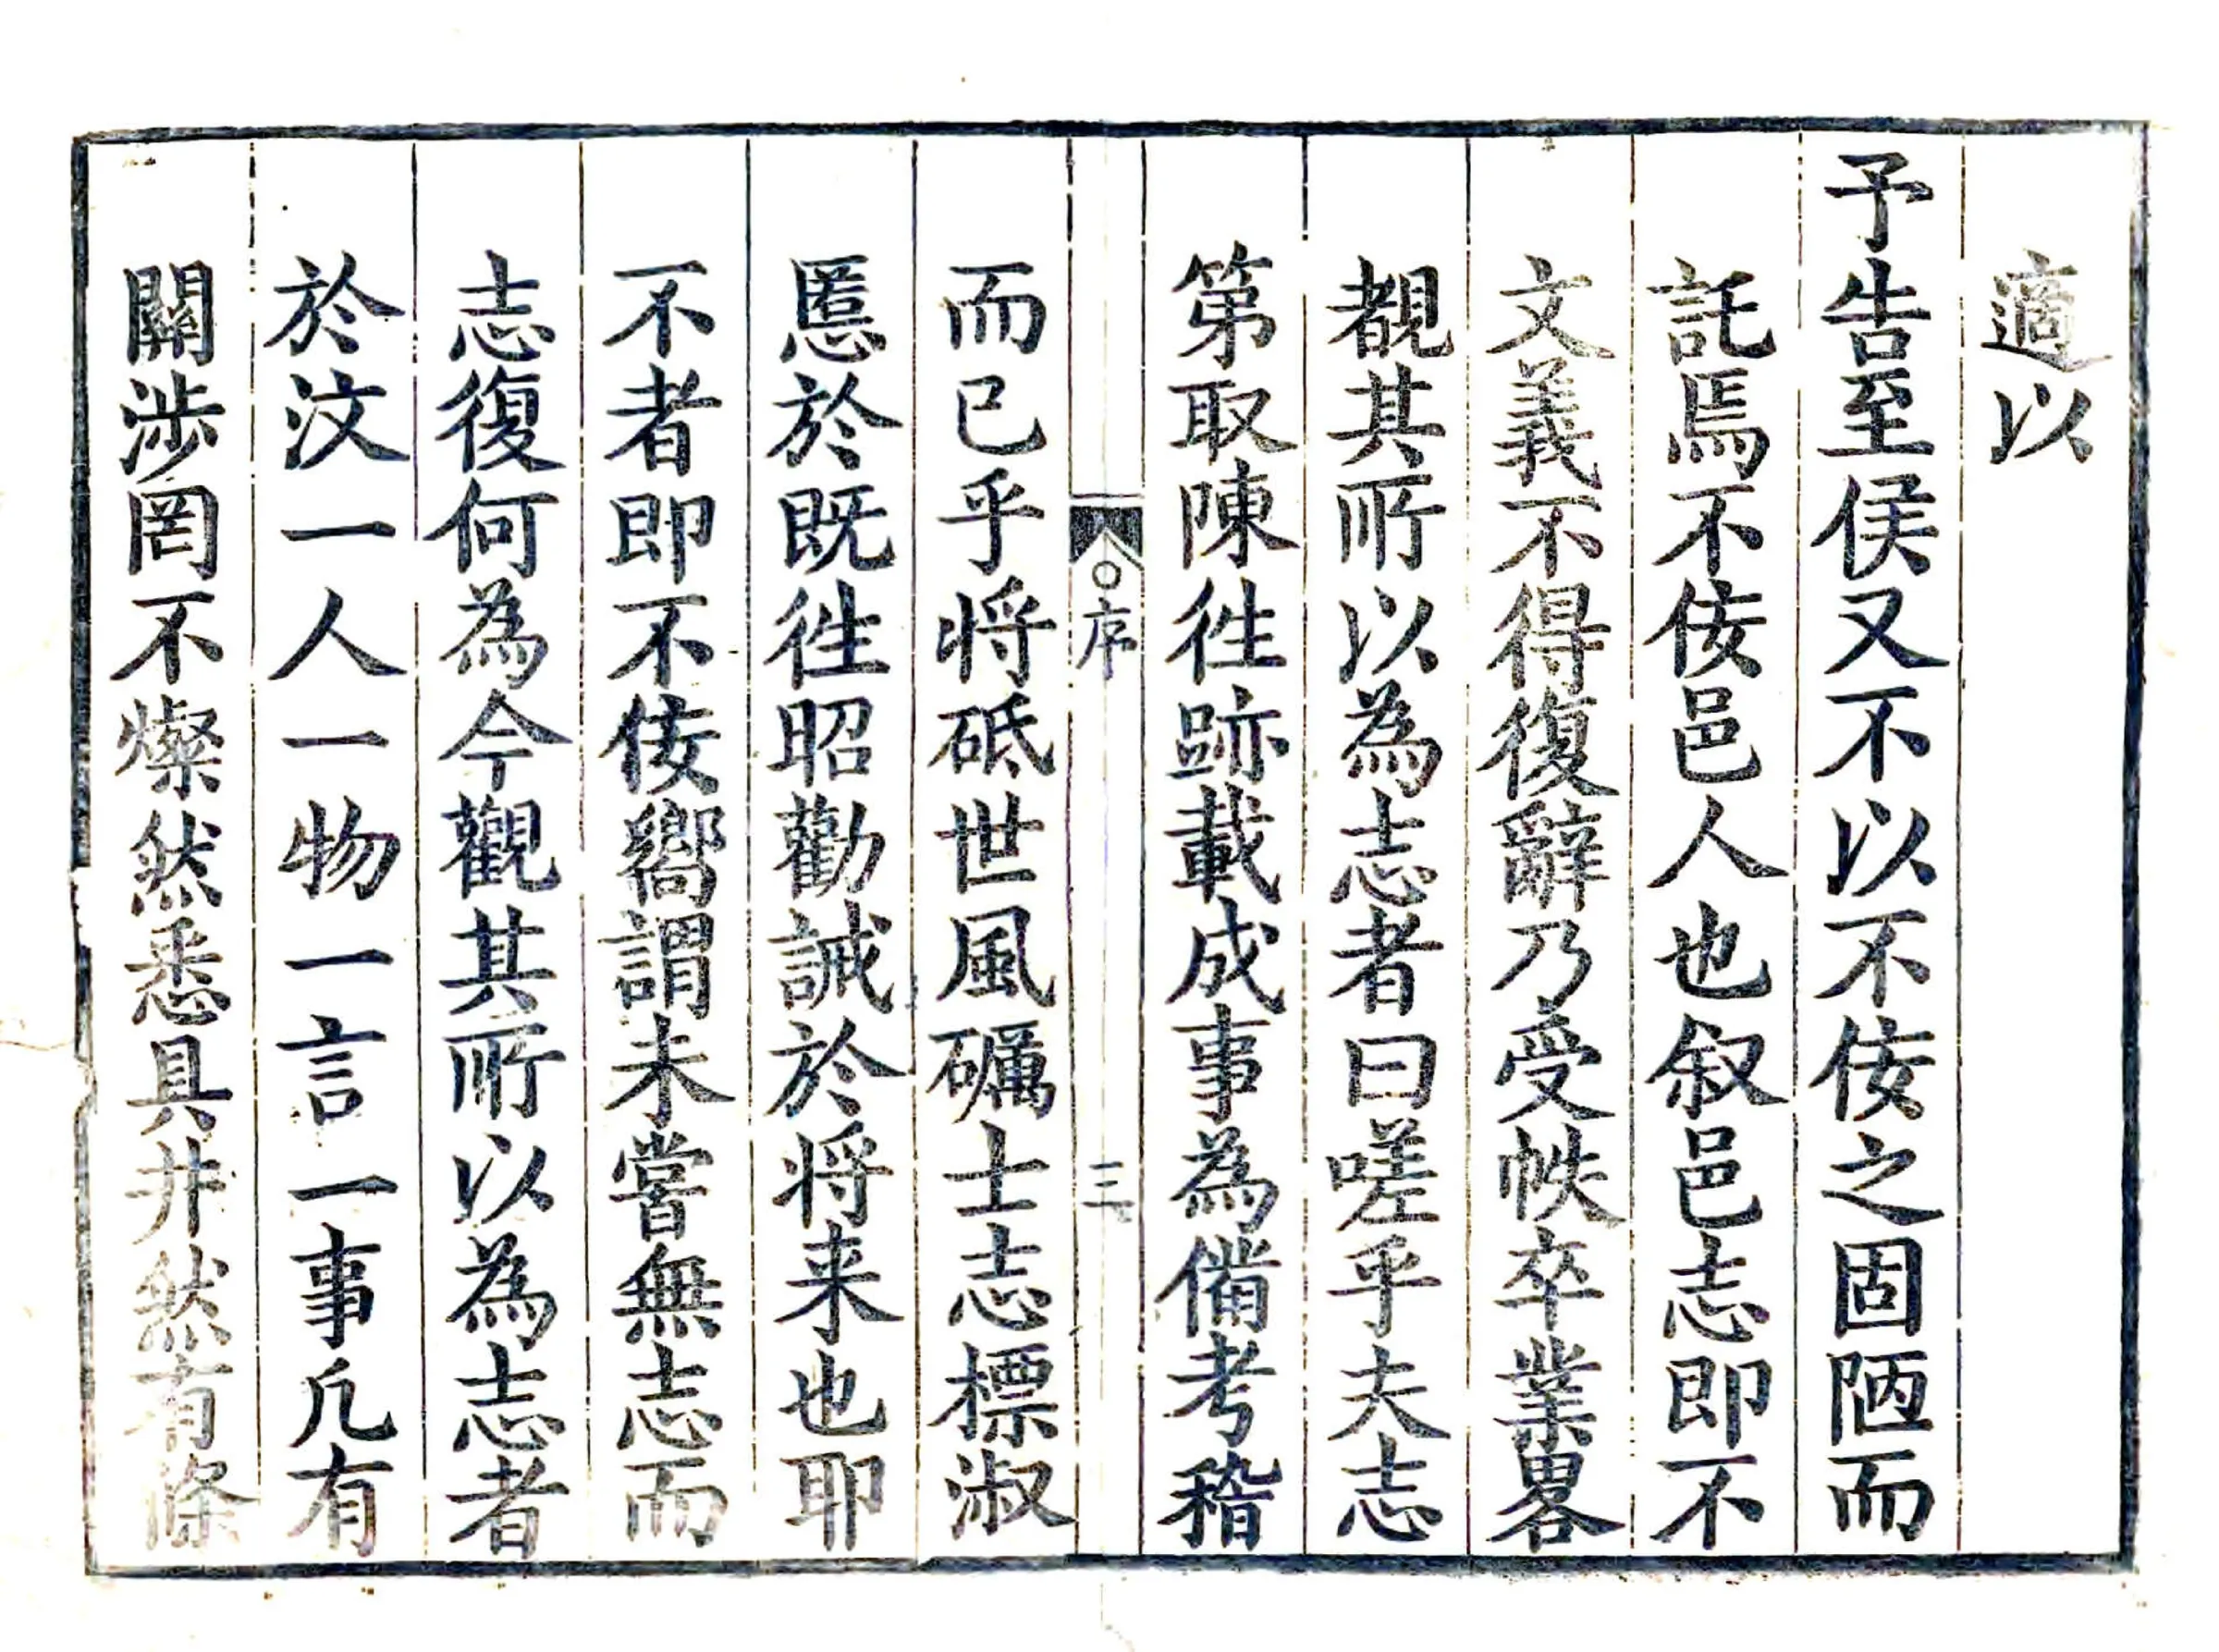 適以
予告至侯又不以不佞之固陋而
託焉不佞邑人也叙邑志即不
文義不得復辭乃受帙卒業畧
覩其所以為志者曰嗟乎夫志
第取陳徃跡載成事為備考稽
序 三
而已乎将砥世風礪士志標淑
慝於既徃昭勸誡於将来也耶
不者即不佞嚮謂未嘗無志而
志復何為今觀其所以為志者
於汶一人一物一言一事凢有
關涉罔不燦然悉具井然有條